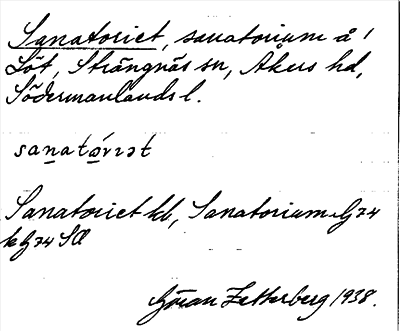 Sanatoriet, sanatorium å 1
Löt, Strängnäs sn, Åkers hd,
Södermanlands l.
sanatórıət
Sanatoriet kb, Sanatorium G74
G74 SÖ
Göran Zetterberg 1938.